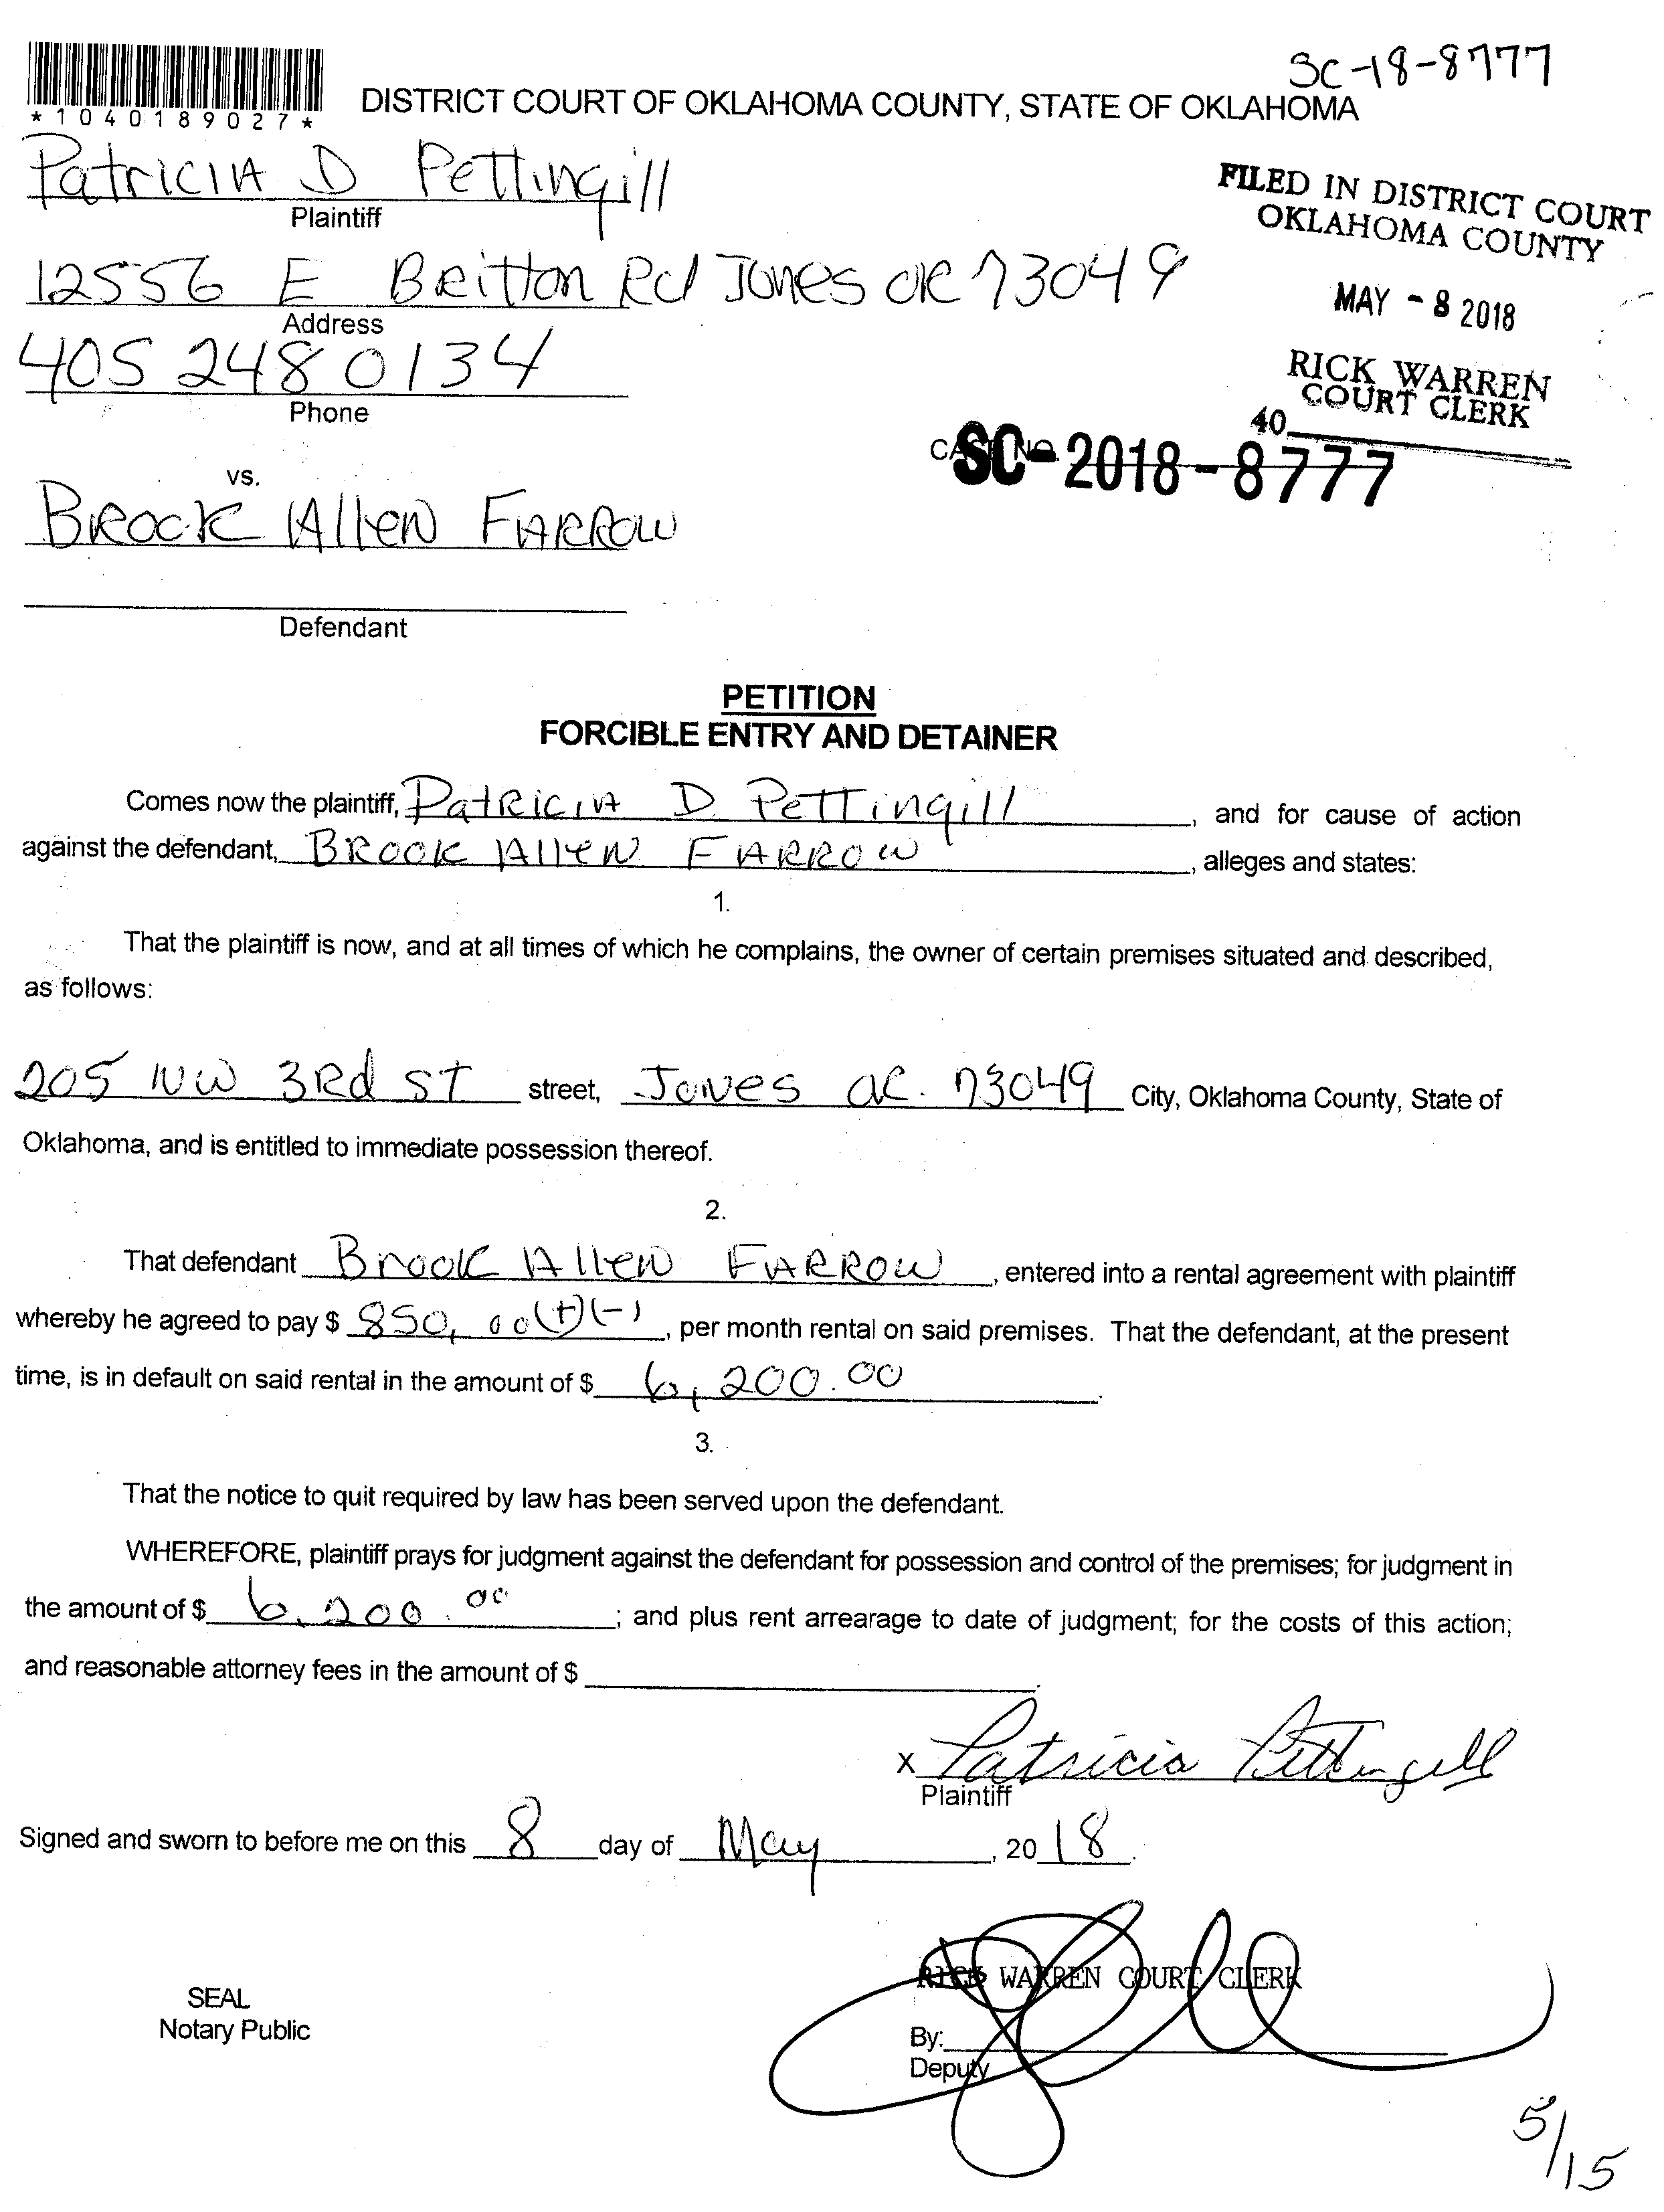 SC-18-8777
*1040189027*
DISTRICT COURT OF OKLAHOMA COUNTY, STATE OF OKLAHOMA
Patricia D Pettingill
Plaintiff
FILED IN DISTRICT COURT
OKLAHOMA COUNTY
12556 E Britton Rd Jones OK 73049
Address
MAY - 8 2018
405 248 0134
Phone
RICK WARREN
COURT CLERK
40
CASE NO.
SC-2018-8777
vs.
Brock Allen Farrow
Defendant
PETITION
FORCIBLE ENTRY AND DETAINER
Comes now the plaintiff, Patricia D. Pettingill, and for cause of action
against the defendant, Brock Allen Farrow, alleges and states:
1.
That the plaintiff is now, and at all times of which he complains, the owner of certain premises situated and described,
as follows:
205 NW 3Rd ST street, Jones OK. 73049 City, Oklahoma County, State of
Oklahoma, and is entitled to immediate possession thereof.
2.
That defendant Brock Allen Farrow, entered into a rental agreement with plaintiff
whereby he agreed to pay $ 850.00 (+)(-), per month rental on said premises. That the defendant, at the present
time, is in default on said rental in the amount of $ 6,200.00.
3.
That the notice to quit required by law has been served upon the defendant.
WHEREFORE, plaintiff prays for judgment against the defendant for possession and control of the premises; for judgment in
the amount of $ 6,200.00; and plus rent arrearage to date of judgment; for the costs of this action;
and reasonable attorney fees in the amount of $
X Patricia Pettingill
Plaintiff
Signed and sworn to before me on this 8 day of May, 2018.
RICK WARREN COURT CLERK
SEAL
Notary Public
By:
Deputy
5/15